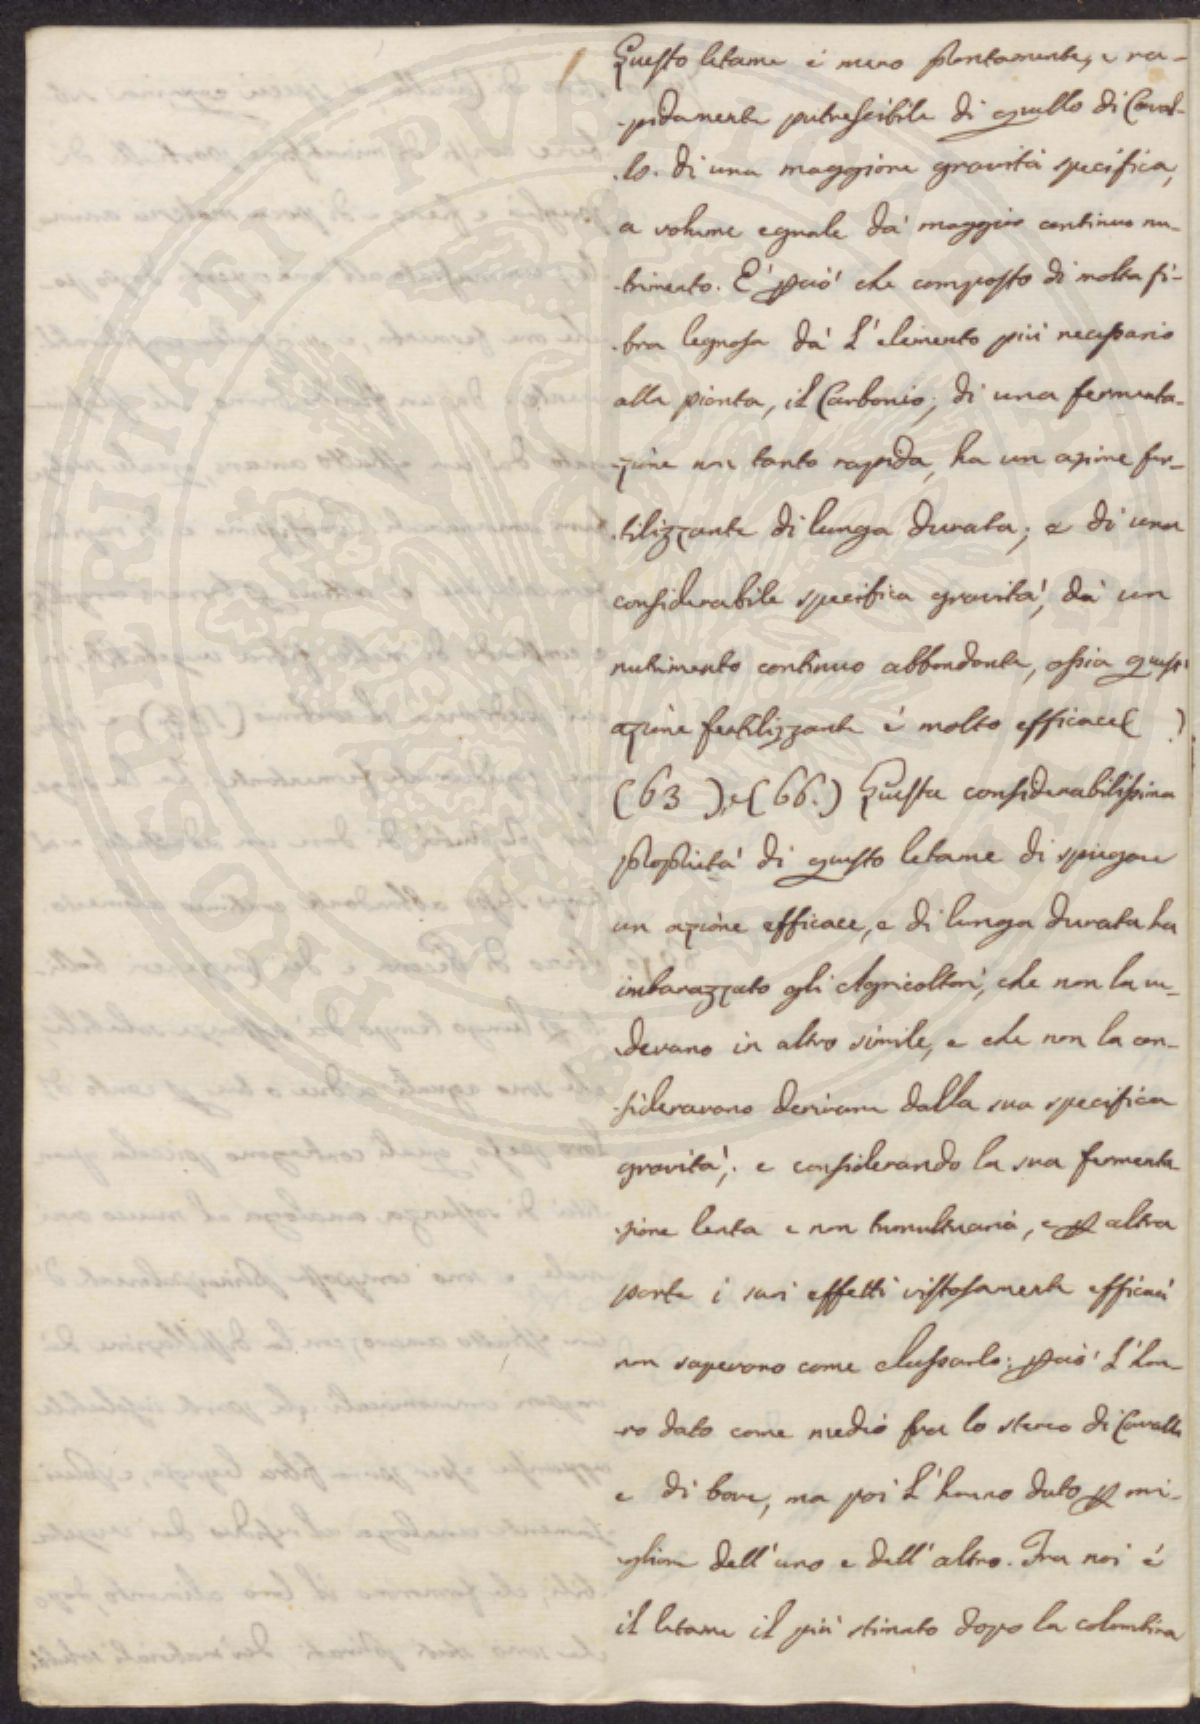 Questo letame è meno prontamente, e ra-
-pidamente putrescibile di quello di Caval-
-lo. Di una maggiore gravità specifica,
a volume eguale dà maggior continuo nu-
-trimento. E' perciò che composto di molta fi-
-bra legnosa dà l'elemento più necessario
alla pianta, il Carbonio; di una fermenta-
-zione non tanto rapida, ha un azione fer-
-tilizzante di lunga durata; e di una
considerabile specifica gravità, dà un
nutrimento continuo abbondante, ossia quest'
azione fertilizzante è molto efficace ( )
(63 ), e (66.) Questa considerabilissima
proprietà di questo letame di spiegare
un azione efficace, e di lunga durata ha
imbarazzato gli Agricoltori, che non la ve-
devano in altro simile, e che non la con-
-sideravano derivare dalla sua specifica
gravità; e considerando la sua fermenta-
-zione lenta e non tumultuaria, e per altra
parte i suoi effetti vistosamente efficaci
non sapevano come classarlo: perciò l'han-
-no dato come medio fra lo sterco di Cavallo
e di bove, ma poi l'hanno dato per mi-
-gliore dell'uno e dell'altro. Fra noi è
il letame il più stimato dopo la colombina
PROSPERITATI PUBLICAE AUGENDAE